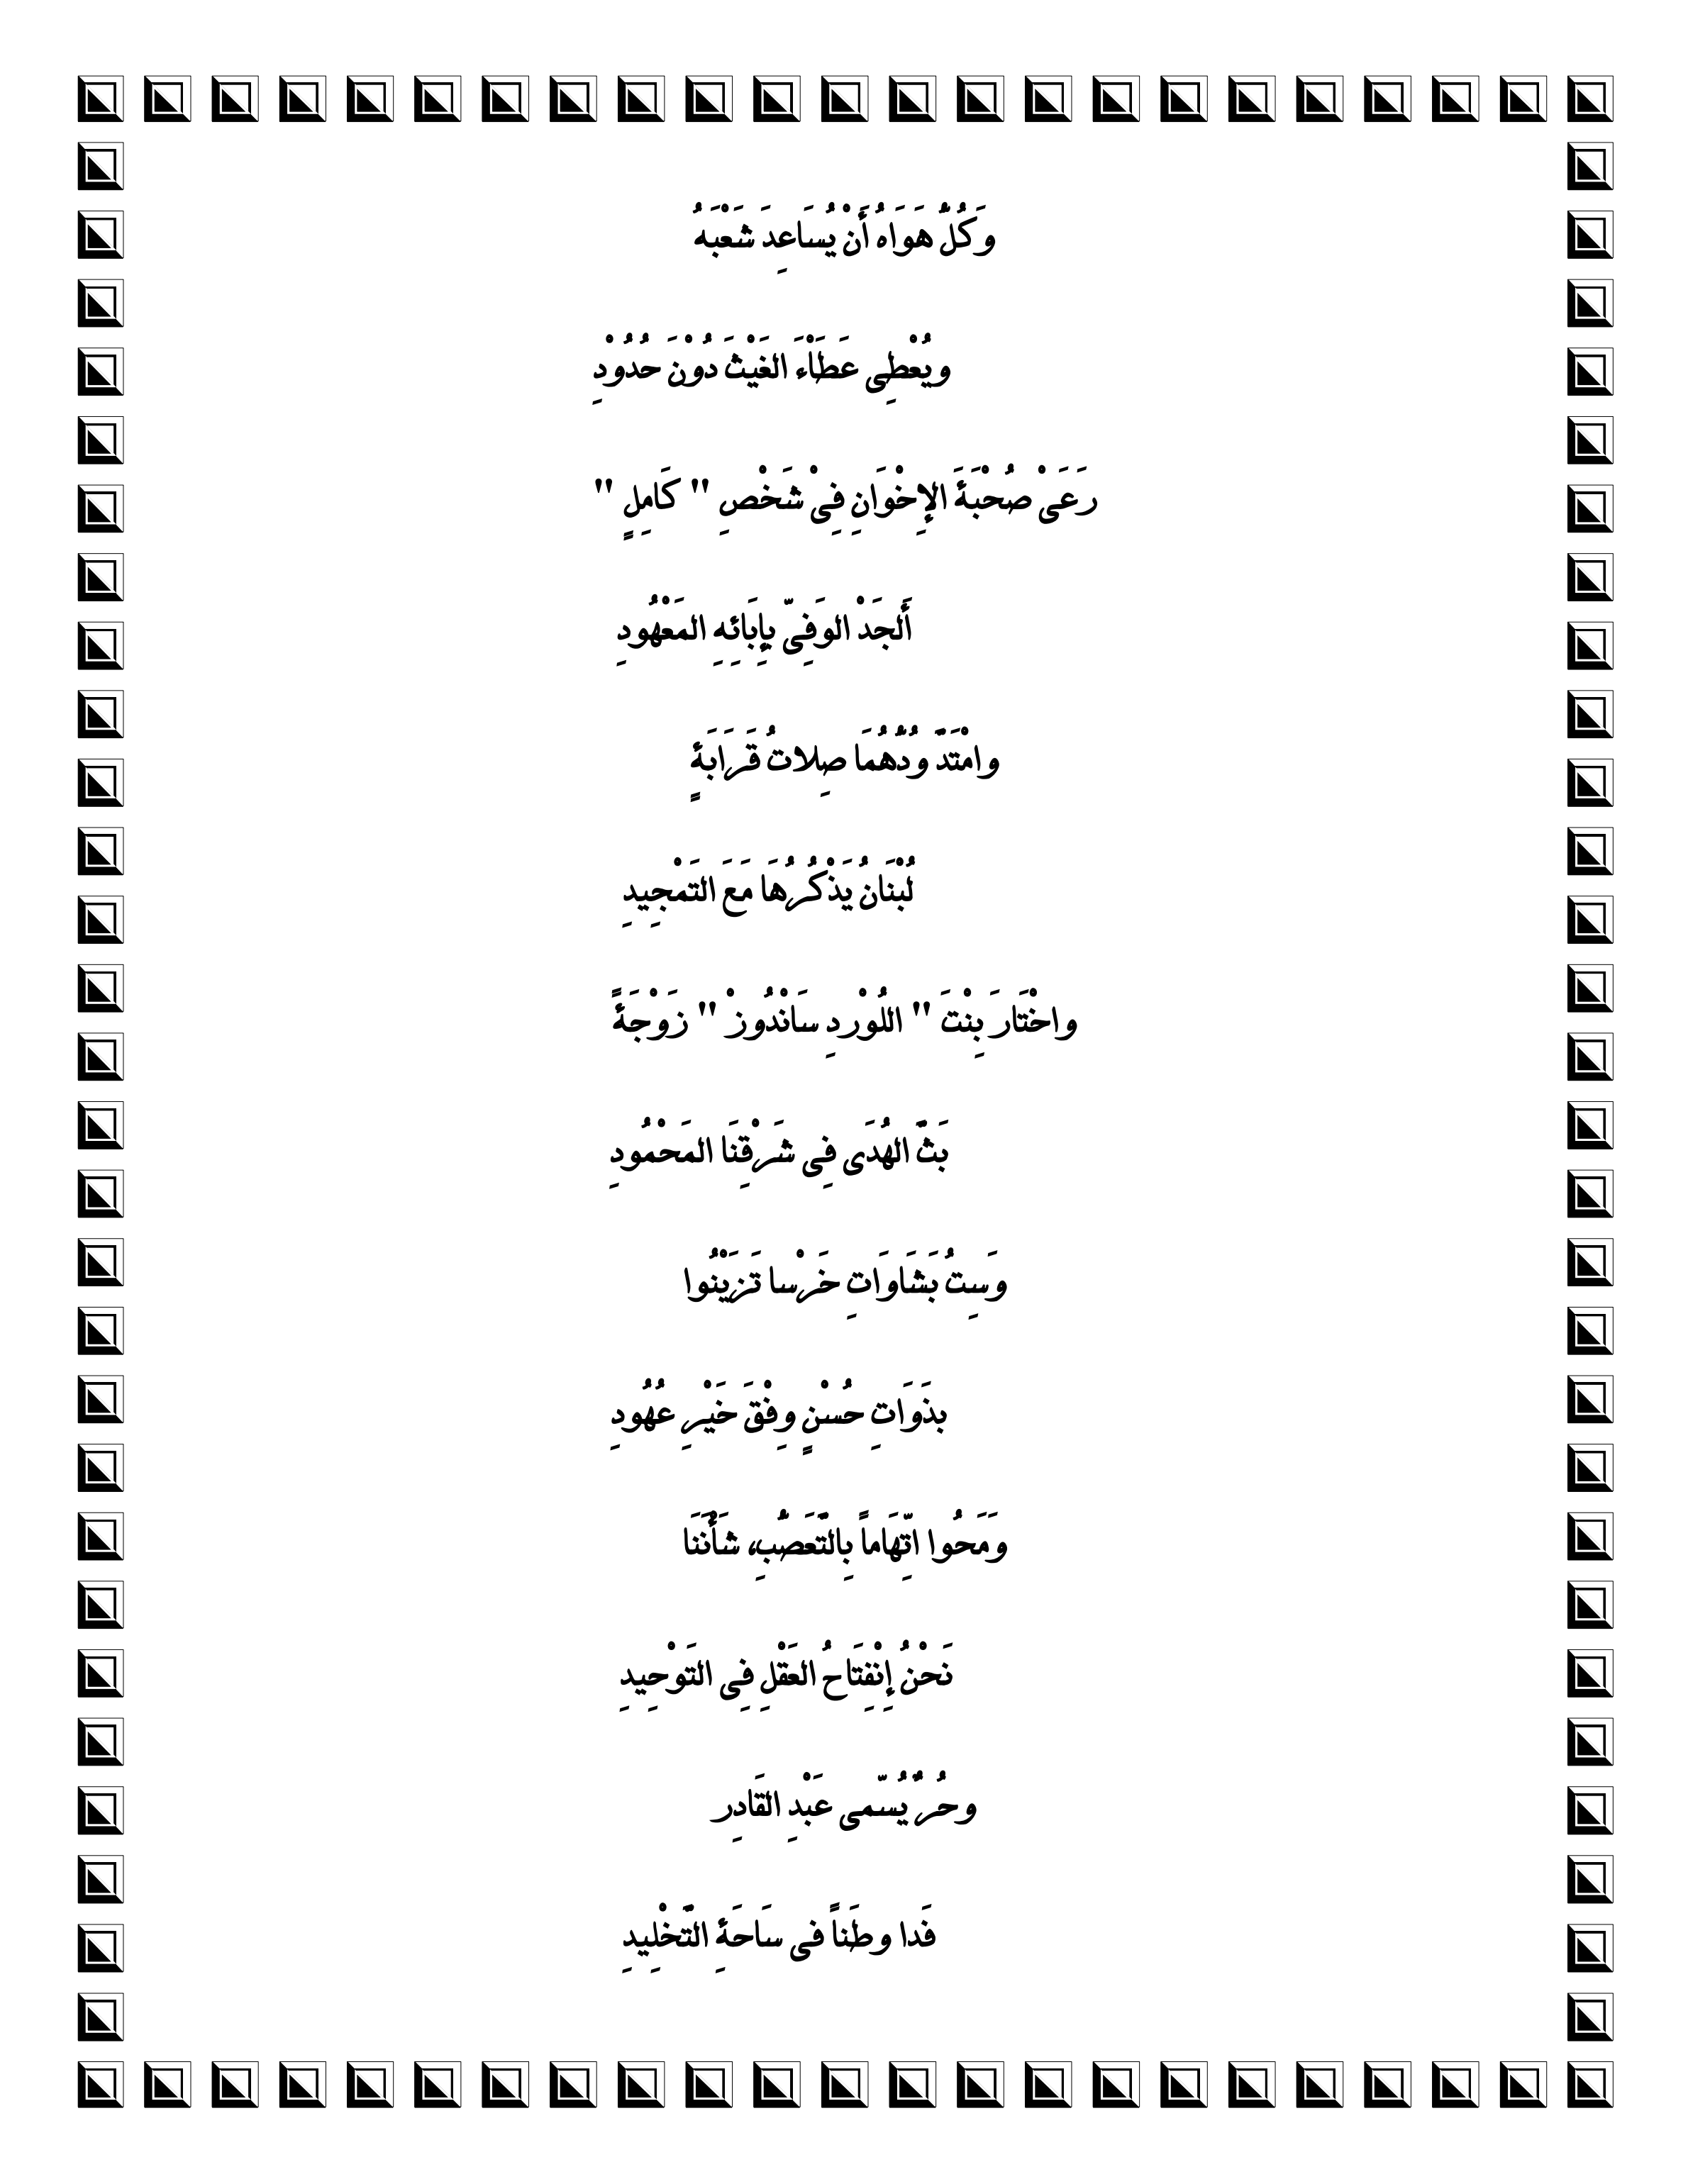 وَكُلُّ هَوَاهُ أَنْ يُسَاعِدَ شَعْبَهُ
ويُعْطِي عَطَاْءَ الغَيْثَ دُوْنَ حُدُوْدِ
رَعَىْ صُحْبَةَ الإِخْوَانِ فِىْ شَخْصِ " كَامِلٍ "
أَلجَدْ الوَفِىّ بِإِبَائِهِ المَعْهُودِ
وامْتَدَّ وُدُّهُمَا صِلاتُ قَرَابَةٍ
لُبْنَانُ يَذْكُرُهَا مَعَ التَمْجِيدِ
واخْتَارَ بِنْتَ " اللُوْردِ سَانْدُوزْ " زَوْجَةً
بَثَّ الهُدَى فِى شَرْقِنَا المَحْمُودِ
وَسِتُ بَشَاوَاتِ خَرْسا تَزَيْنُوا
بذَوَاتِ حُسْنٍ وِفْقَ خَيْرِ عُهُودِ
وَمَحُوا اتِّهَاماً بِالتَّعَصُّبِ، شَأْنَنَا
نَحْنُ إِنْفِتَاحُ العَقْلِ فِى التَوْحِيدِ
وحُرٌ يُسَّمى عَبْدِ القَادِر
فَدا وطَناً فى سَاحَةِ التَّخْلِيدِ